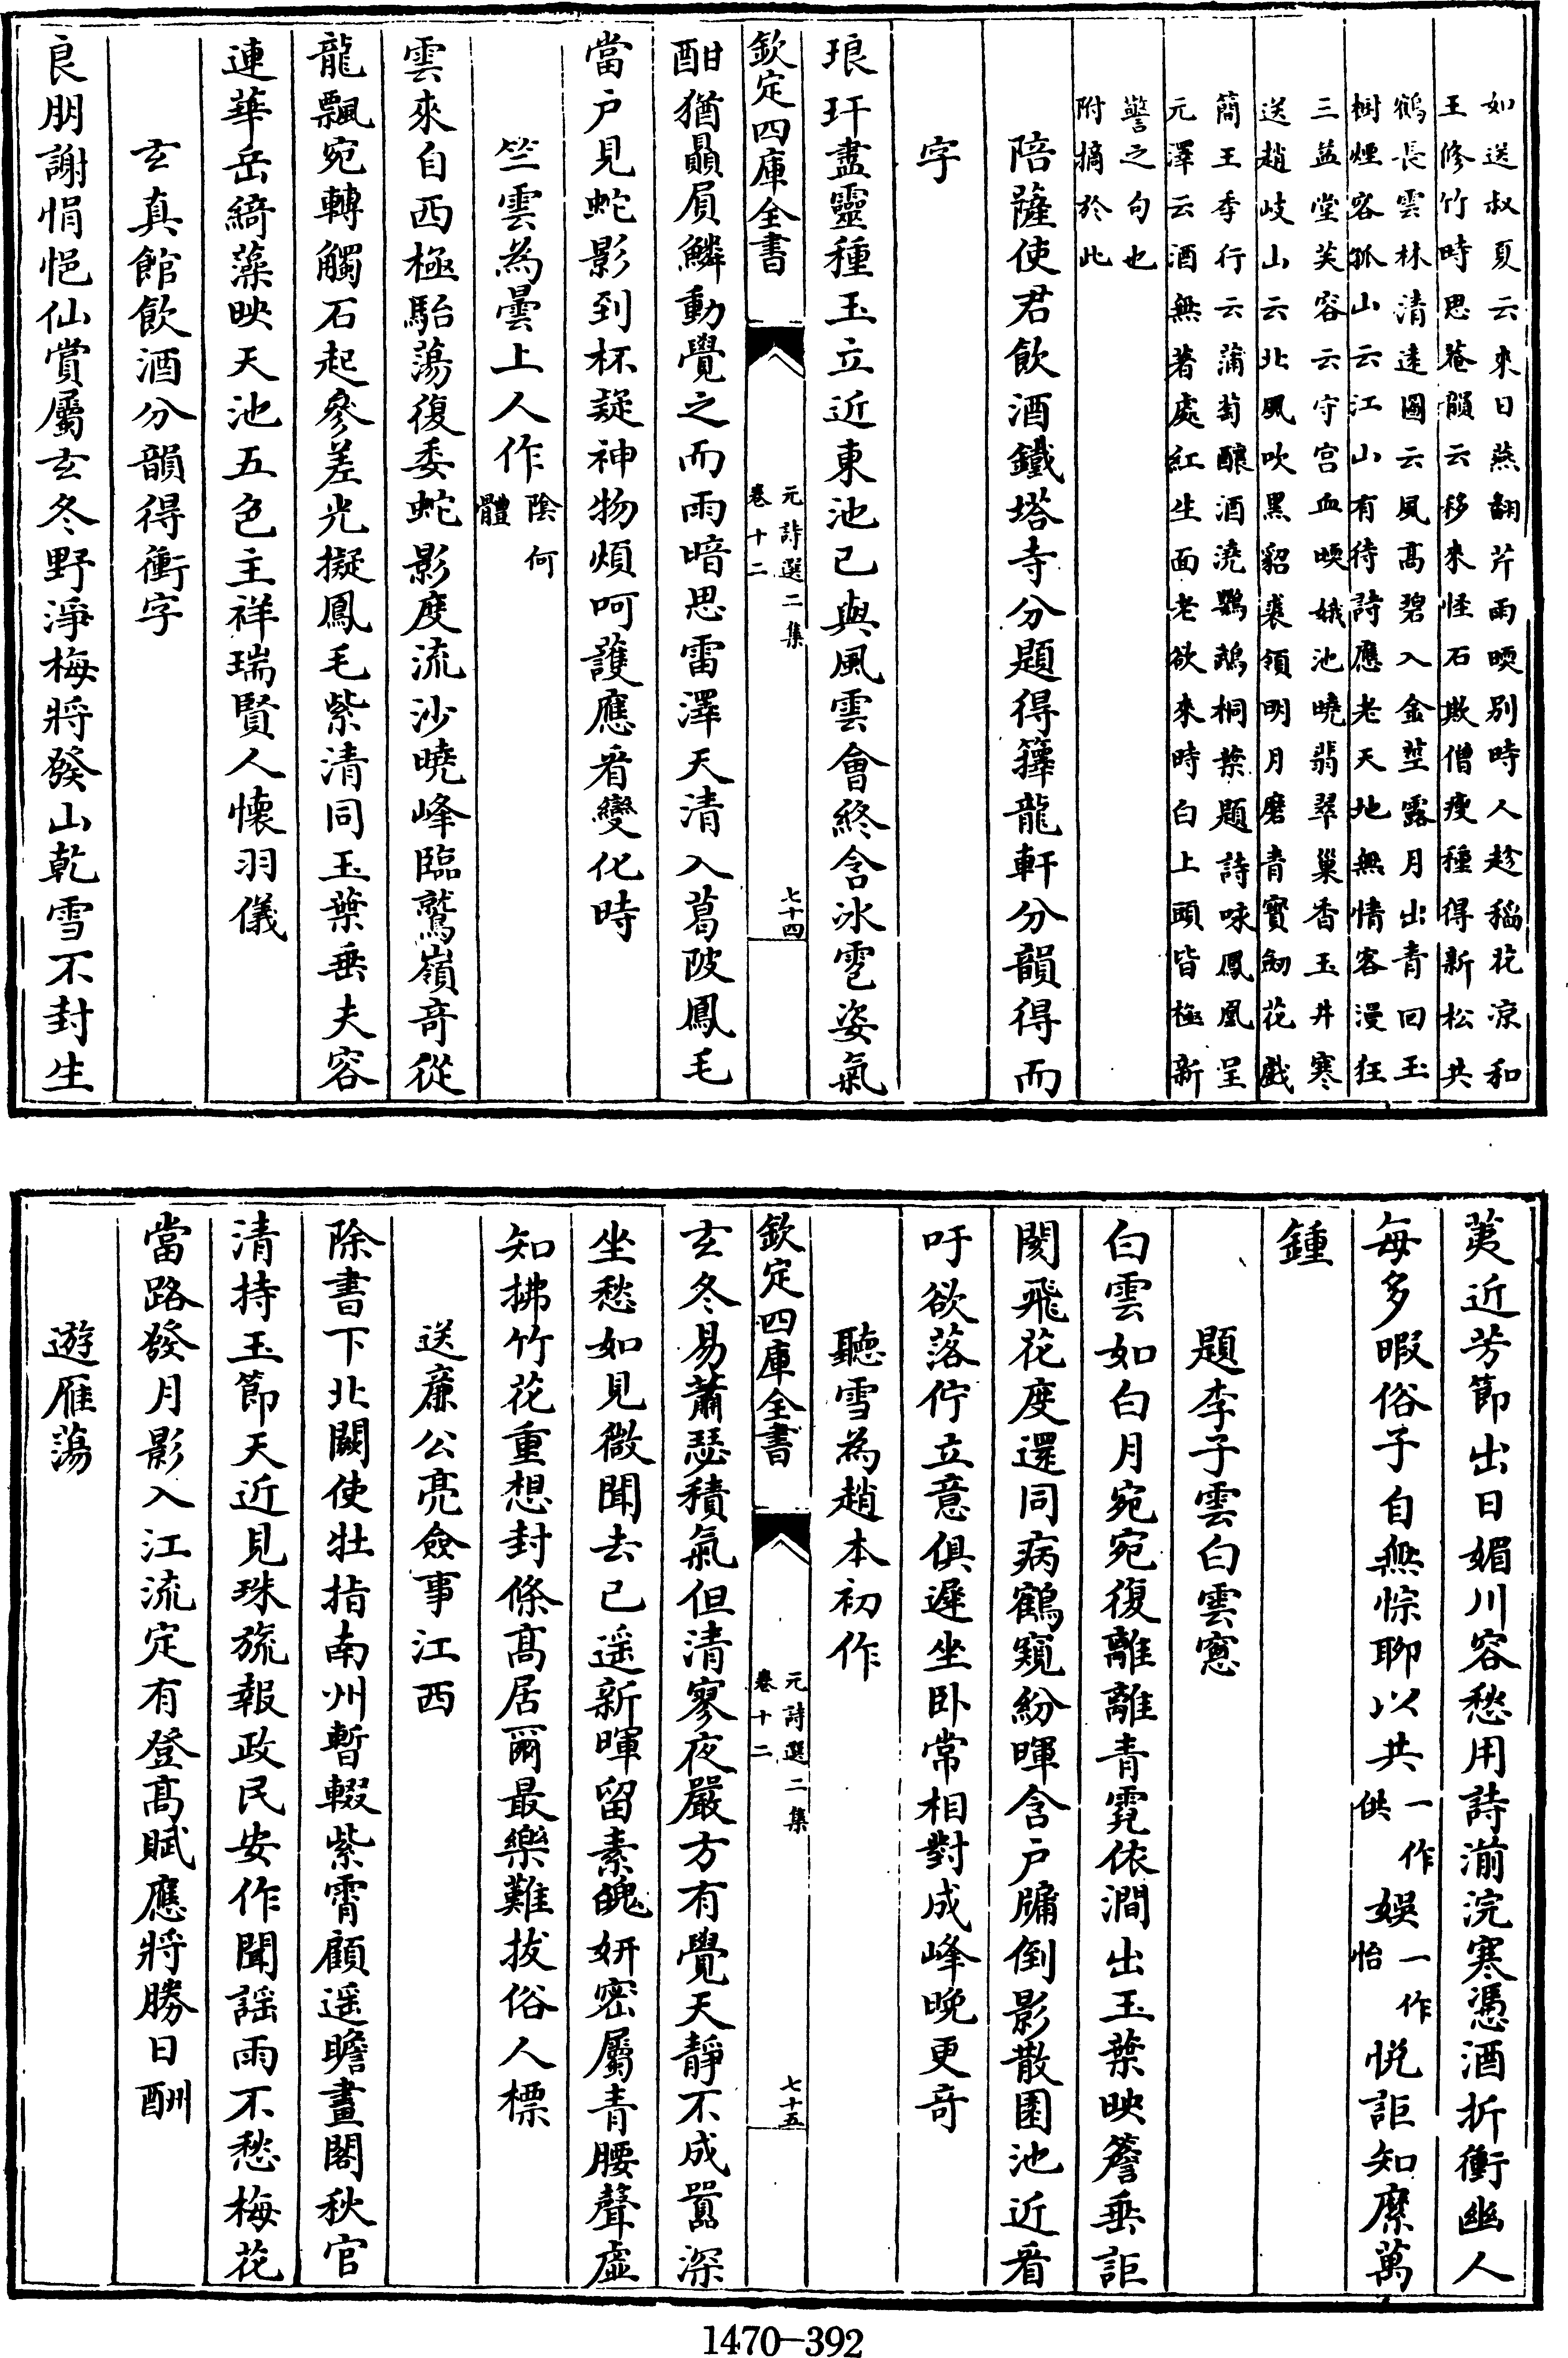 如送叔夏云來日燕翻芹雨暝別時人趁稻花涼和
王修竹時思菴韻云移來怪石欺僧瘦種得新松共
鶴長雲林清遠圖云風高碧入金莖露月出青回玉
樹煙客孤山云江山有待詩應老天地無情客漫狂
三益堂芙容云守宫血暝娥池曉翡翠巢香玉井寒
送趙岐山云北風吹黑貂裘領明月磨青寳劒花戲
簡王季行云蒲萄釀酒澆鸚鵡桐葉題詩味鳳凰呈
元澤云酒無著處紅生面老欲來時白上頭皆極新
警之句也
附摘於此
陪薩使君飲酒鐵塔寺分題得籜龍軒分韻得而
字
琅玕盡靈種玉立近東池已與風雲會終含冰雹姿氣
欽定四庫全書
元詩選二集
卷十二
七十四
酣猶贔屓鱗動覺之而雨暗思雷澤天清入葛陂鳳毛
當户見蛇影到杯疑神物煩呵護應看變化時
竺雲為曇上人作陰何
體
雲來自西極駘蕩復委蛇影度流沙曉峰臨鷲嶺竒從
龍飄宛轉觸石起參差光擬鳳毛紫清同玉葉垂夫容
連華岳綺藻映天池五色主祥瑞賢人懷羽儀
玄真館飲酒分韻得衝字
良朋謝悁悒仙賞屬玄冬野淨梅將發山乾雪不封生
荑近芳節出日媚川容愁用詩湔浣寒憑酒折衝幽人
每多暇俗子自無悰聊以共一作
供娱一作
怡悦詎知縻萬
鍾
題李子雲白雲窻
白雲如白月宛宛復離離青霓依澗出玉葉映簷垂詎
閡飛花度還同病鶴窺紛暉含户牖倒影散園池近看
吁欲落佇立意俱遲坐卧常相對成峰晚更竒
聽雪為趙本初作
欽定四庫全書
元詩選二集
卷十二
七十五
玄冬易蕭瑟積氣但清寥夜嚴方有覺天靜不成囂深
坐愁如見微聞去已遥新暉留素魄妍密屬青腰聲虛
知拂竹花重想封條髙居爾最樂難拔俗人標
送亷公亮僉事江西
除書下北闕使牡指南州暫輟紫霄顧遥瞻畫閣秋官
清持玉節天近見珠旒報政民安作聞謡雨不愁梅花
當路發月影入江流定有登髙賦應將勝日酬
遊雁蕩
1470-392